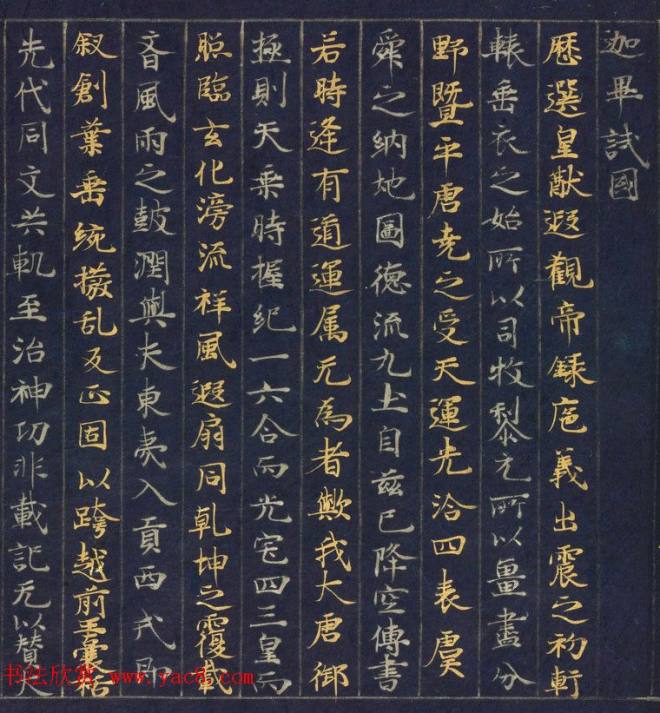 迦畢試國
歷選皇猷遐觀帝錄庖義出震之初軒
轅垂衣之始所以司牧黎元所以畺畫分
野暨乎唐堯之受天運光洽四表虞
舜之納地圖德流九土自茲已降空傳書
若時逢有道運属无為者歟我大唐御
極則天乘時握紀一六合而光宅四三皇而
照臨玄化滂流祥風遐扇同乾坤之覆載
齊風雨之鼓潤與夫東夷入貢西戎即
叙創業垂統撥乱反正固以跨越前王囊括
先代同文共軌至治神功非載記无以贊
书法欣赏 www.yac8.com